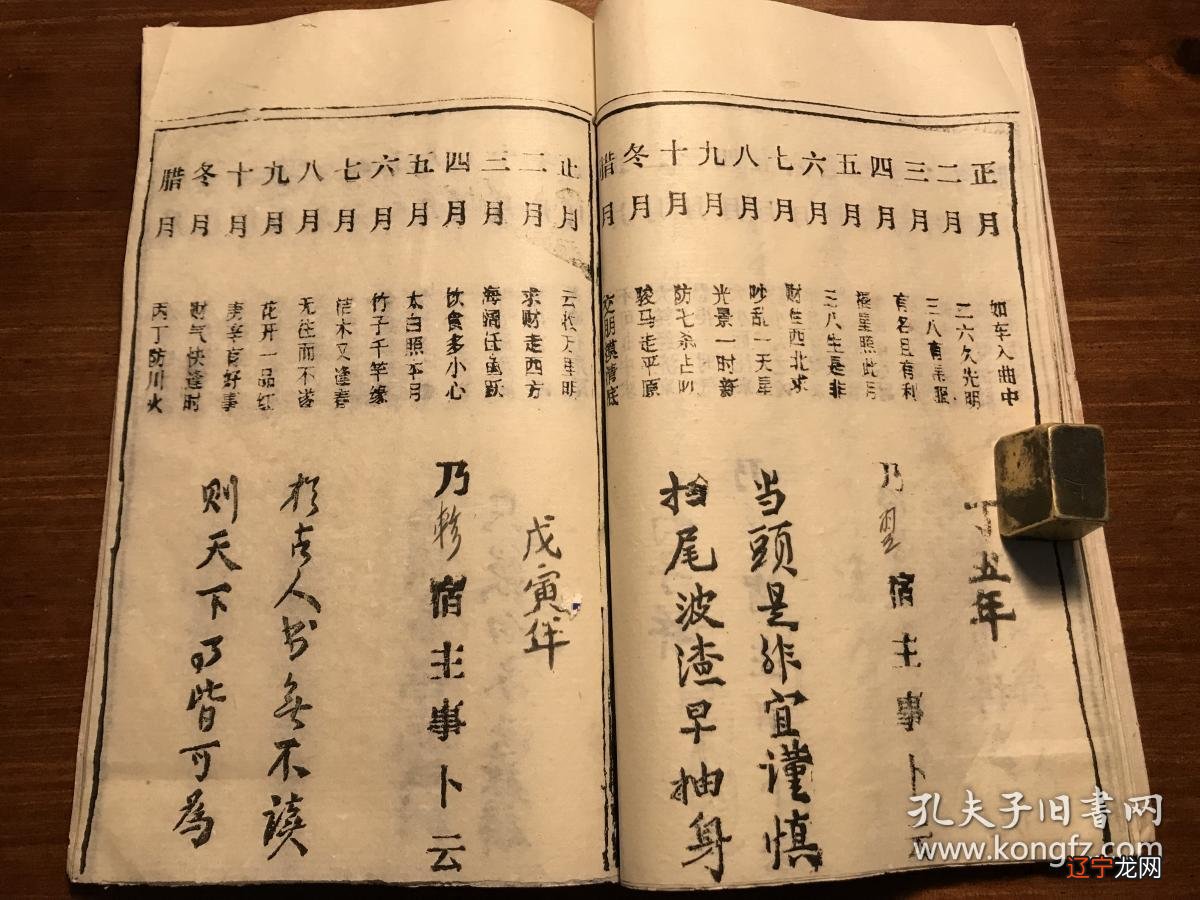 正月 如车入曲中
二月 二六久先明
三月 三八有
四月 有名且有利
五月 福星照此月
六月 三八生是非
七月 财在西北求
八月 吵乱一天星
九月 光景一时新
十月 防七杀占
冬月 骏马走平原
腊月 交朋摸清底
丁丑年
乃 宿主事卜云
当頭是非宜謹慎
拾尾波渣早抽身
正月 云收万里明
二月 求财走西方
三月 海阔任鱼跃
四月 饮食多小心
五月 太白照本月
六月 竹子千竿缘
七月 枯木又逢春
八月 无往而不遂
九月 花开一品红
十月 庚辛有好事
冬月 财气快逢时
腊月 丙丁防川火
戊寅年
乃軫宿主事卜云
於古人书無不读
则天下 皆可為
孔夫子旧书网
www.kongfz.com
辽宁龙网